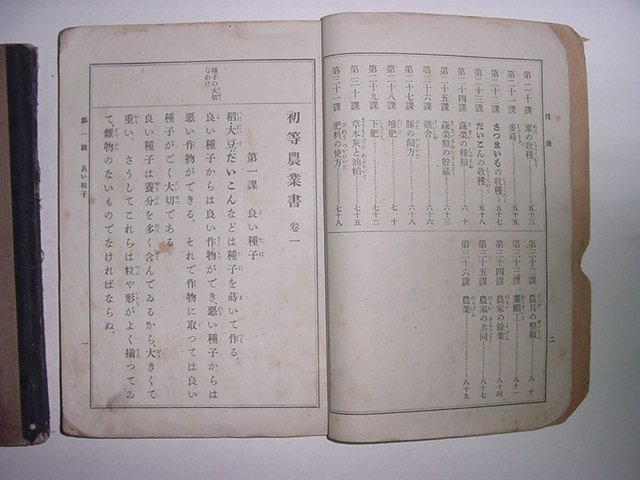 目次
二
第二十課 粟の收穫 五十三
第二十一課 麥蒔 五十五
第二十二課 さつまいもの收穫 五十七
第二十三課 だいこんの收穫 五十八
第二十四課 蔬菜の種類 六十
第二十五課 蔬菜類の貯藏
第二十六課 雞舍 六十六
第二十七課 豚の飼方
第二十八課 堆肥 七十
第二十九課 下肥 七十二
第三十課 草木灰と油粕 七十五
第三十一課 肥料の使方 七十八
第三十二課 農具の整頓 八十
第三十三課 藁細工 八十一
第三十四課 農家の餘業 八十四
第三十五課 農家の共同 八十七
第三十六課 農業 八十九
初等農業書 卷一
第一課 良い種子
種子の大切なわけ
稻大豆だいこんなどは種子を蒔いて作る。
良い種子からは良い作物ができ、惡い種子からは
惡い作物ができる。それで作物に取つては良い
種子がごく大切である。
良い種子は養分を多く含んでゐるから、大きくて
重い。さうしてこれらは粒や形がよく揃つてゐ
て、雜物のないものでなければならぬ。
第一課 良い種子
一